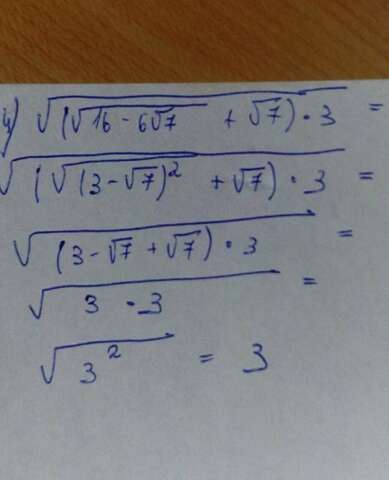 4) √((√(16 - 6√7) + √7) · 3) =
√((√((3 - √7)²) + √7) · 3) =
√((3 - √7 + √7) · 3) =
√(3 · 3) =
√(3²) = 3